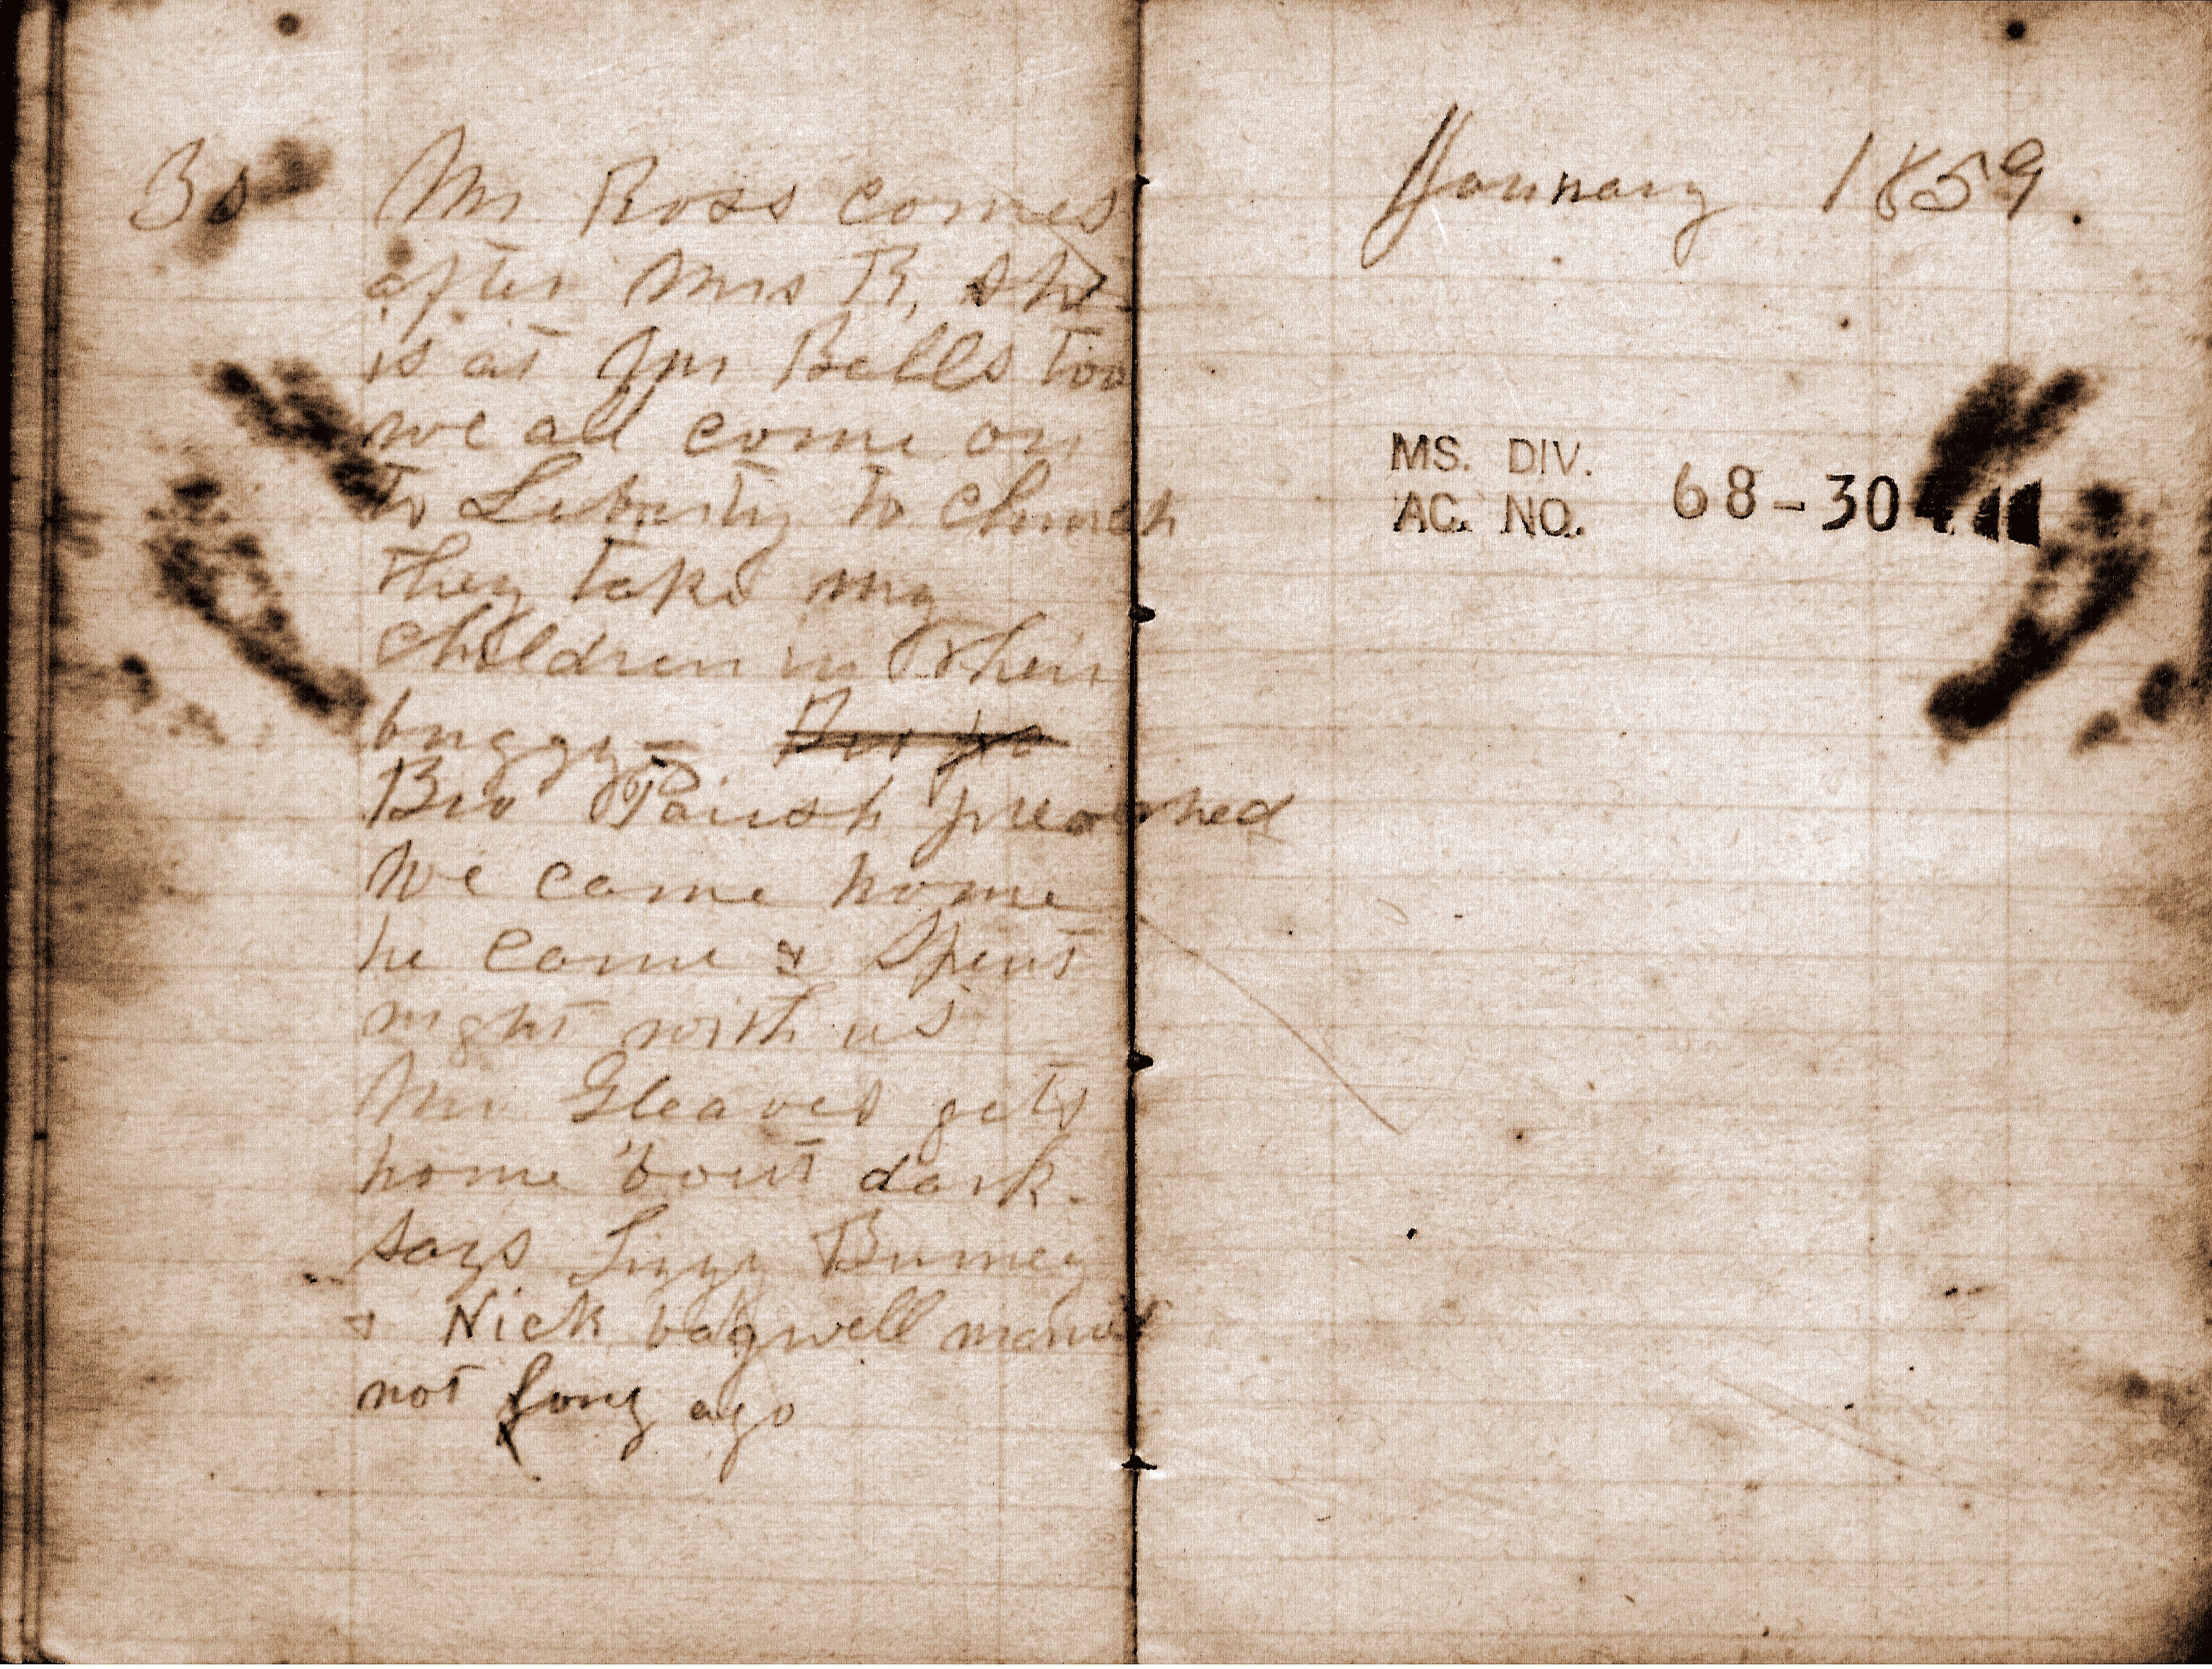 Mr Ross comes
after Mrs B, she
is at Jms Bells too
we all come on
to Liberty to Church
they take my
children in their
buggy -
Bro Parish preached
We came home
he came & spent
night with us
Mr Gleaves gets
home 'bout dark.
says Lizzy Burney
& Nick bagwell
not long ago
January 1859.
MS. DIV.
AC. NO. 68-30